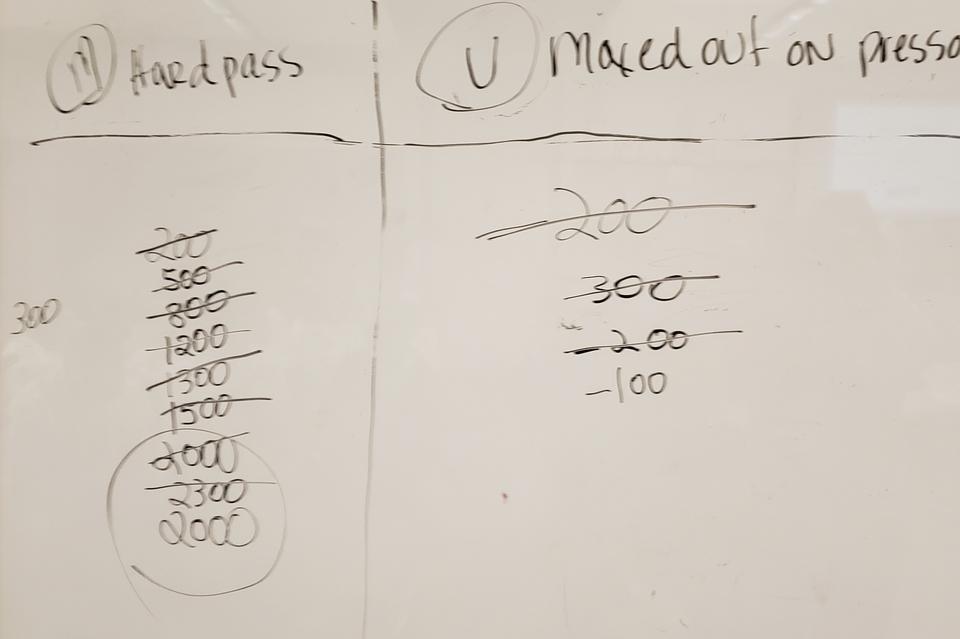 Hard pass
U Maxed out on presso
200
500
800
300
1200
1300
1500
2000
2300
2000
200
300
-200
-100